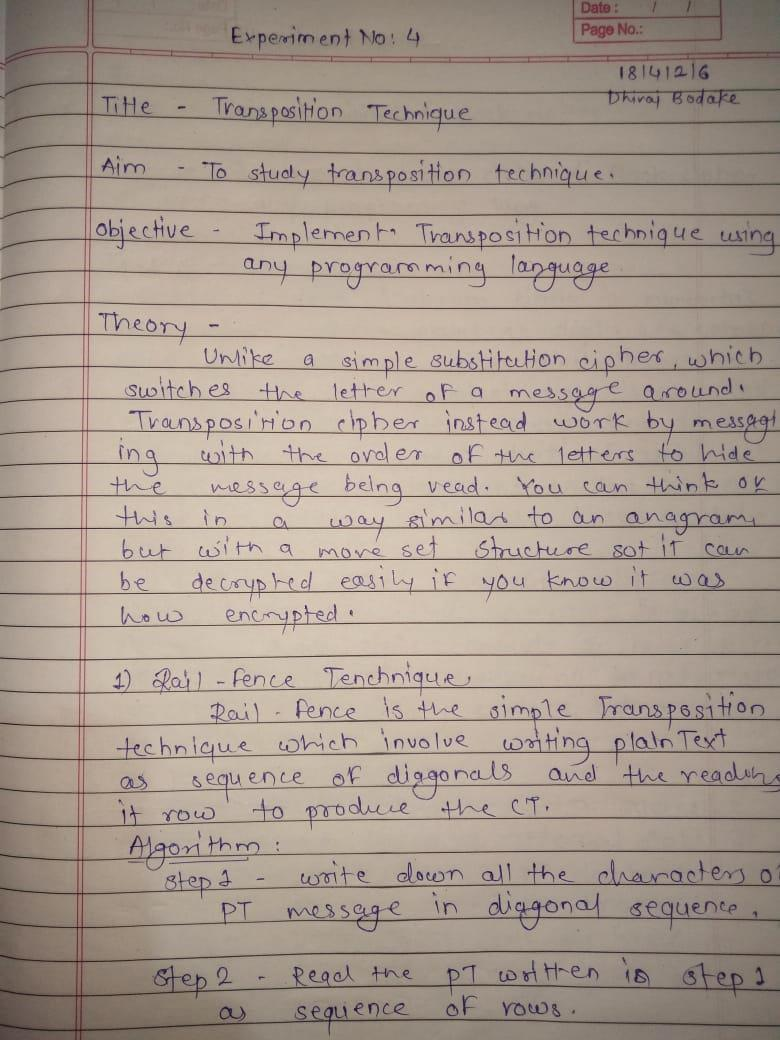 Date : / /
Page No.:
Experiment No: 4
18141216
Dhiraj Bodake
Title - Transposition Technique
Aim - To study transposition technique.
objective - Implement Transposition technique using
any programming language
Theory -
Unlike a simple substitution cipher, which
switches the letter of a message around.
Transposition cipher instead work by messagi
ing with the order of the letters to hide
the message being read. You can think of
this in a way similar to an anagram,
but with a more set structure sot it can
be decrypted easily if you know it was
how encrypted.
1) Rail - fence Tenchnique
Rail - fence is the simple Transposition
technique which involve writing plain Text
as sequence of diagonals and the reading
it row to produce the CT.
Algorithm :
Step 1 - write down all the characters of
PT message in diagonal sequence.
Step 2 - Read the PT written in step 1
as sequience of rows.